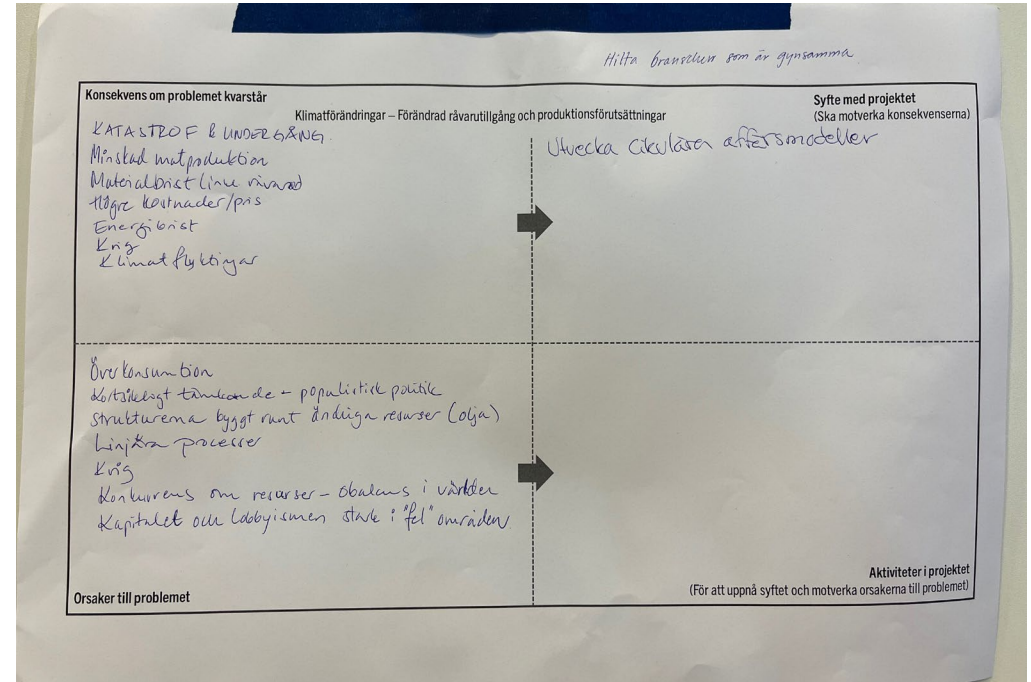 Hitta branscher som är gynsamma
Konsekvens om problemet kvarstår
Syfte med projektet
(Ska motverka konsekvenserna)
Klimatförändringar – Förändrad råvarutillgång och produktionsförutsättningar
KATASTROF & UNDERGÅNG
Minskad matproduktion
Materialbrist
Högre kostnader/pris
Energibrist
Krig
Klimatflyktingar
Utvecka cikulära affärsmodeller
Överkonsumtion
Kortsiktigt tänkande – populistisk politik
Strukturerna byggt runt ändliga resurser (olja)
Linjära processer
Krig
Konkurrens om resurser – obalans i världen
Kapitalet och lobbyismen stark i "fel" områden
Orsaker till problemet
Aktiviteter i projektet
(För att uppnå syftet och motverka orsakerna till problemet)